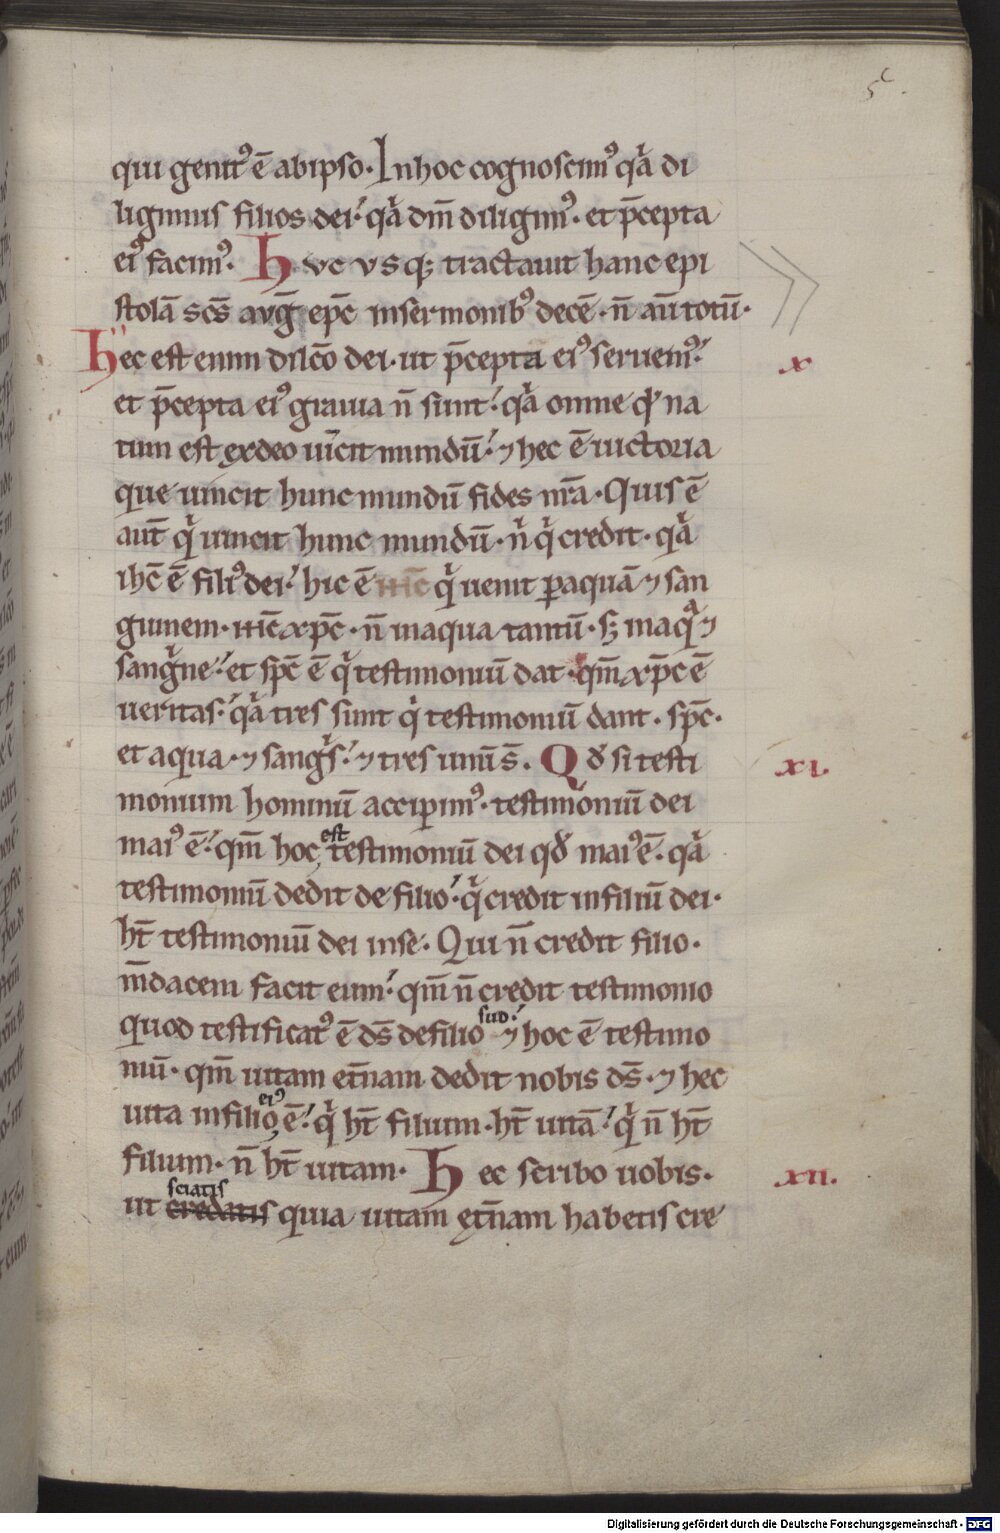 5c.
qui genit᷒ ē abipso· In hoc cognoscim᷒ qͣ di
ligimus filios dei· qͣ dm̄ diligim᷒· et p̄cepta
ei᷒ facim᷒· Hvc vsq; tractauit hanc epi
stolā scs̄ avḡ ep̄c in sermonib᷒ decē· n̄ aut̄ totū·
Hec est enim dilc̄o dei· ut p̄cepta ei᷒ seruem᷒·
x
et p̄cepta ei᷒ grauia n̄ sunt· qͣ omne qđ na
tum est exdeo uīcit mundū· ⁊ hec ē uictoria
que uincit hunc mundū fides nr̄a· Quis ē
aut̄ qͥ uincit hunc mundū· nͥ qͥ credit· qͣ
ihc̄ ē fili᷒ dei· hic ē qͥ uenit ꝑaquā ⁊ san
guinem· ihc̄ xp̄c· n̄ inaqua tantū· s; inaqͣ ⁊
sangͥne· et sp̄c ē qͥ testimoniū dat· qm̄ xp̄c ē
ueritas· qͣ tres sunt qͥ testimoniū dant· sp̄c·
et aqua ⁊ sangͥs· ⁊ tres unū s̄. Qđ si testi
xi.
monium hominū accipim᷒· testimoniū dei
mai᷒ ē· qm̄ hoc est testimoniū dei qđ mai᷒ ē· qͣ
testimoniū dedit de filio· qͥ credit infiliū dei·
ht̄ testimoniū dei inse· Qui n̄ credit filio·
m̄dacem facit eum· qm̄ n̄ credit testimonio
quod testificat᷒ ē ds̄ defilio suo· ⁊ hoc ē testimo
niū· qm̄ uitam et̄nam dedit nobis ds̄· ⁊ hec
uita infilio ei᷒ ē· qͥ ht̄ filium· ht̄ uitā· qͥ n̄ ht̄
filium· n̄ ht̄ uitam· Hec scribo uobis·
xii.
ut credatis sciatis quia uitam et̄nam habetis cre
Digitalisierung gefördert durch die Deutsche Forschungsgemeinschaft - DFG